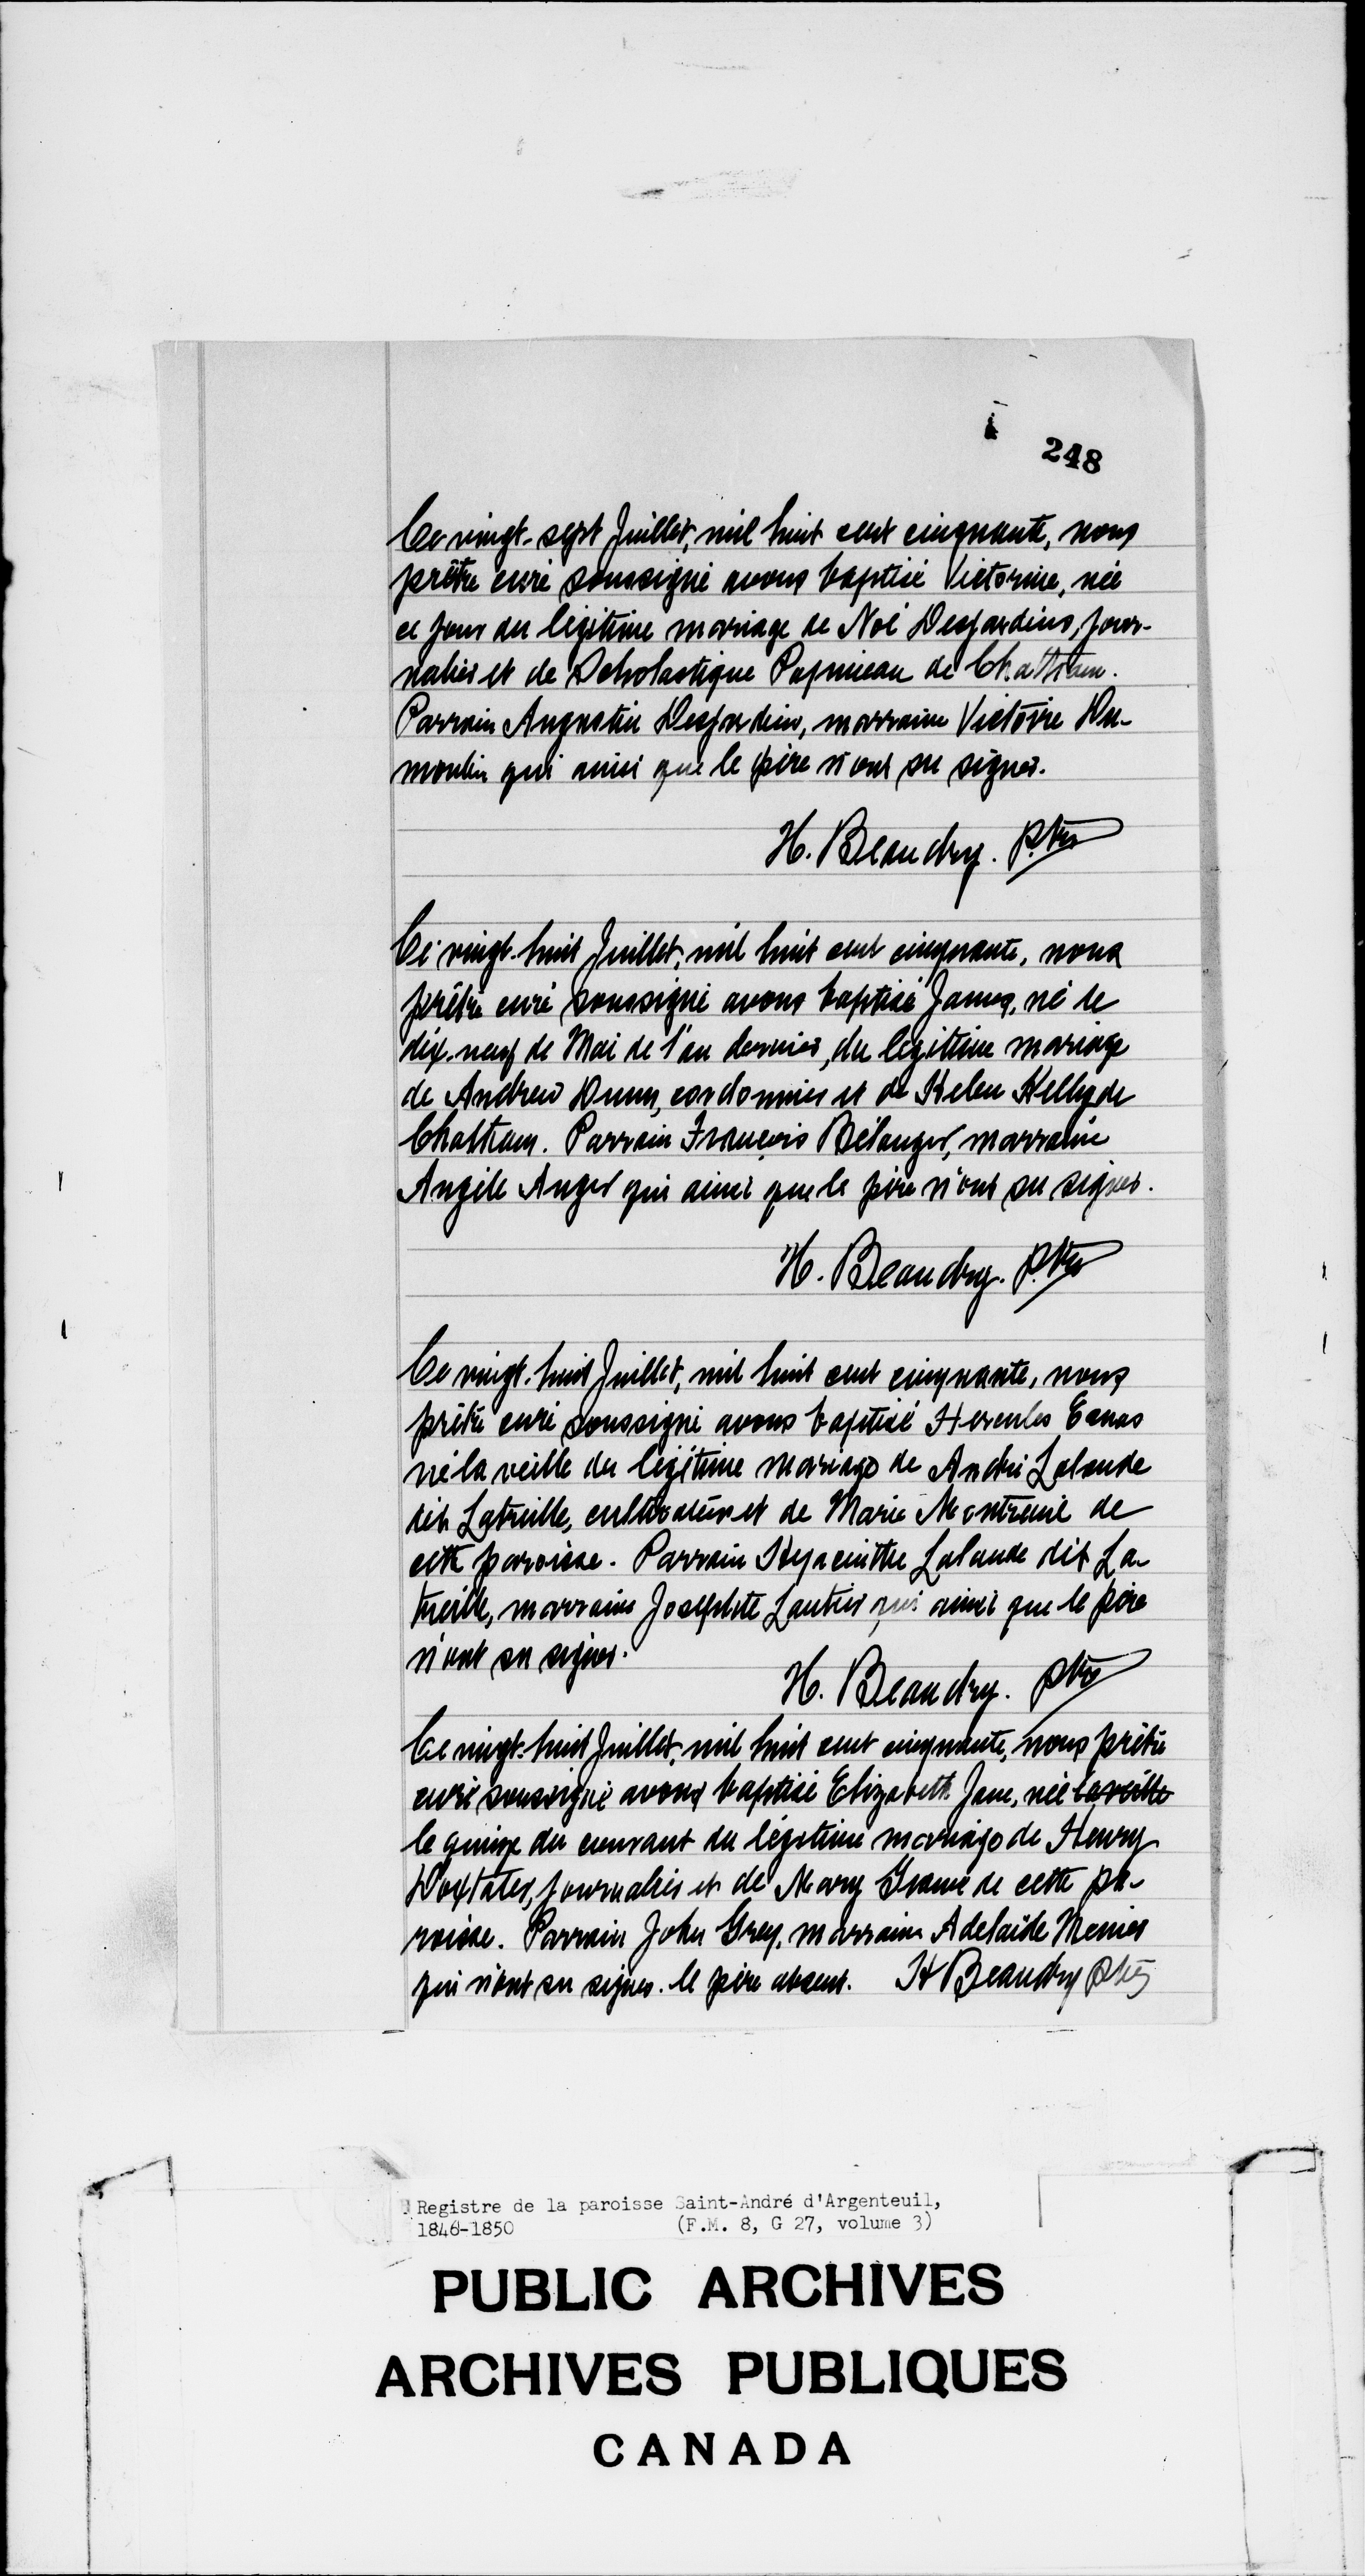 248
Ce vingt-sept Juillet, mil huit cent cinquante, nous
prêtre curé soussigné avons baptisé Victorine, née
ce jour du légitime mariage de Noé Desjardins, jour-
nalier et de Scholastique Papineau de Chattam.
Parrain Augustin Desjardins, marraine Victoire Du-
moulin qui ainsi que le père n'ont su signer.
H. Beaudry. ptre
Ce vingt-huit Juillet, mil huit cent cinquante, nous
prêtre curé soussigné avons baptisé James, né le
dix-neuf de Mai de l'an dernier, du légitime mariage
de Andrew Dunn, cordonnier et de Helen Kelly de
Chattam. Parrain François Bélanger, marraine
Angèle Anger qui ainsi que le père n'ont su signer.
H. Beaudry. ptre
Ce vingt-huit Juillet, mil huit cent cinquante, nous
prêtre curé soussigné avons baptisé Hercules
né la veille du légitime mariage de André Lalande
dit Latreille, cultivateur et de Marie Montreuil de
cette paroisse. Parrain Hyacinthe Lalande dit La-
treille, marraine Josephte Lautier qui ainsi que le père
n'ont su signer.
H. Beaudry. ptre
Ce vingt-huit Juillet, mil huit cent cinquante, nous prêtre
curé soussigné avons baptisé Elizabeth Jane, née la veille
le quinze du courant du légitime mariage de Henry
Doxtater, journalier et de Mary de cette pa-
roisse. Parrain John Grey, marraine Adelaïde Menier
qui n'ont su signer. le père absent. H Beaudry ptre
Registre de la paroisse Saint-André d'Argenteuil,
1846-1850 (F.M. 8, G 27, volume 3)
PUBLIC ARCHIVES
ARCHIVES PUBLIQUES
CANADA